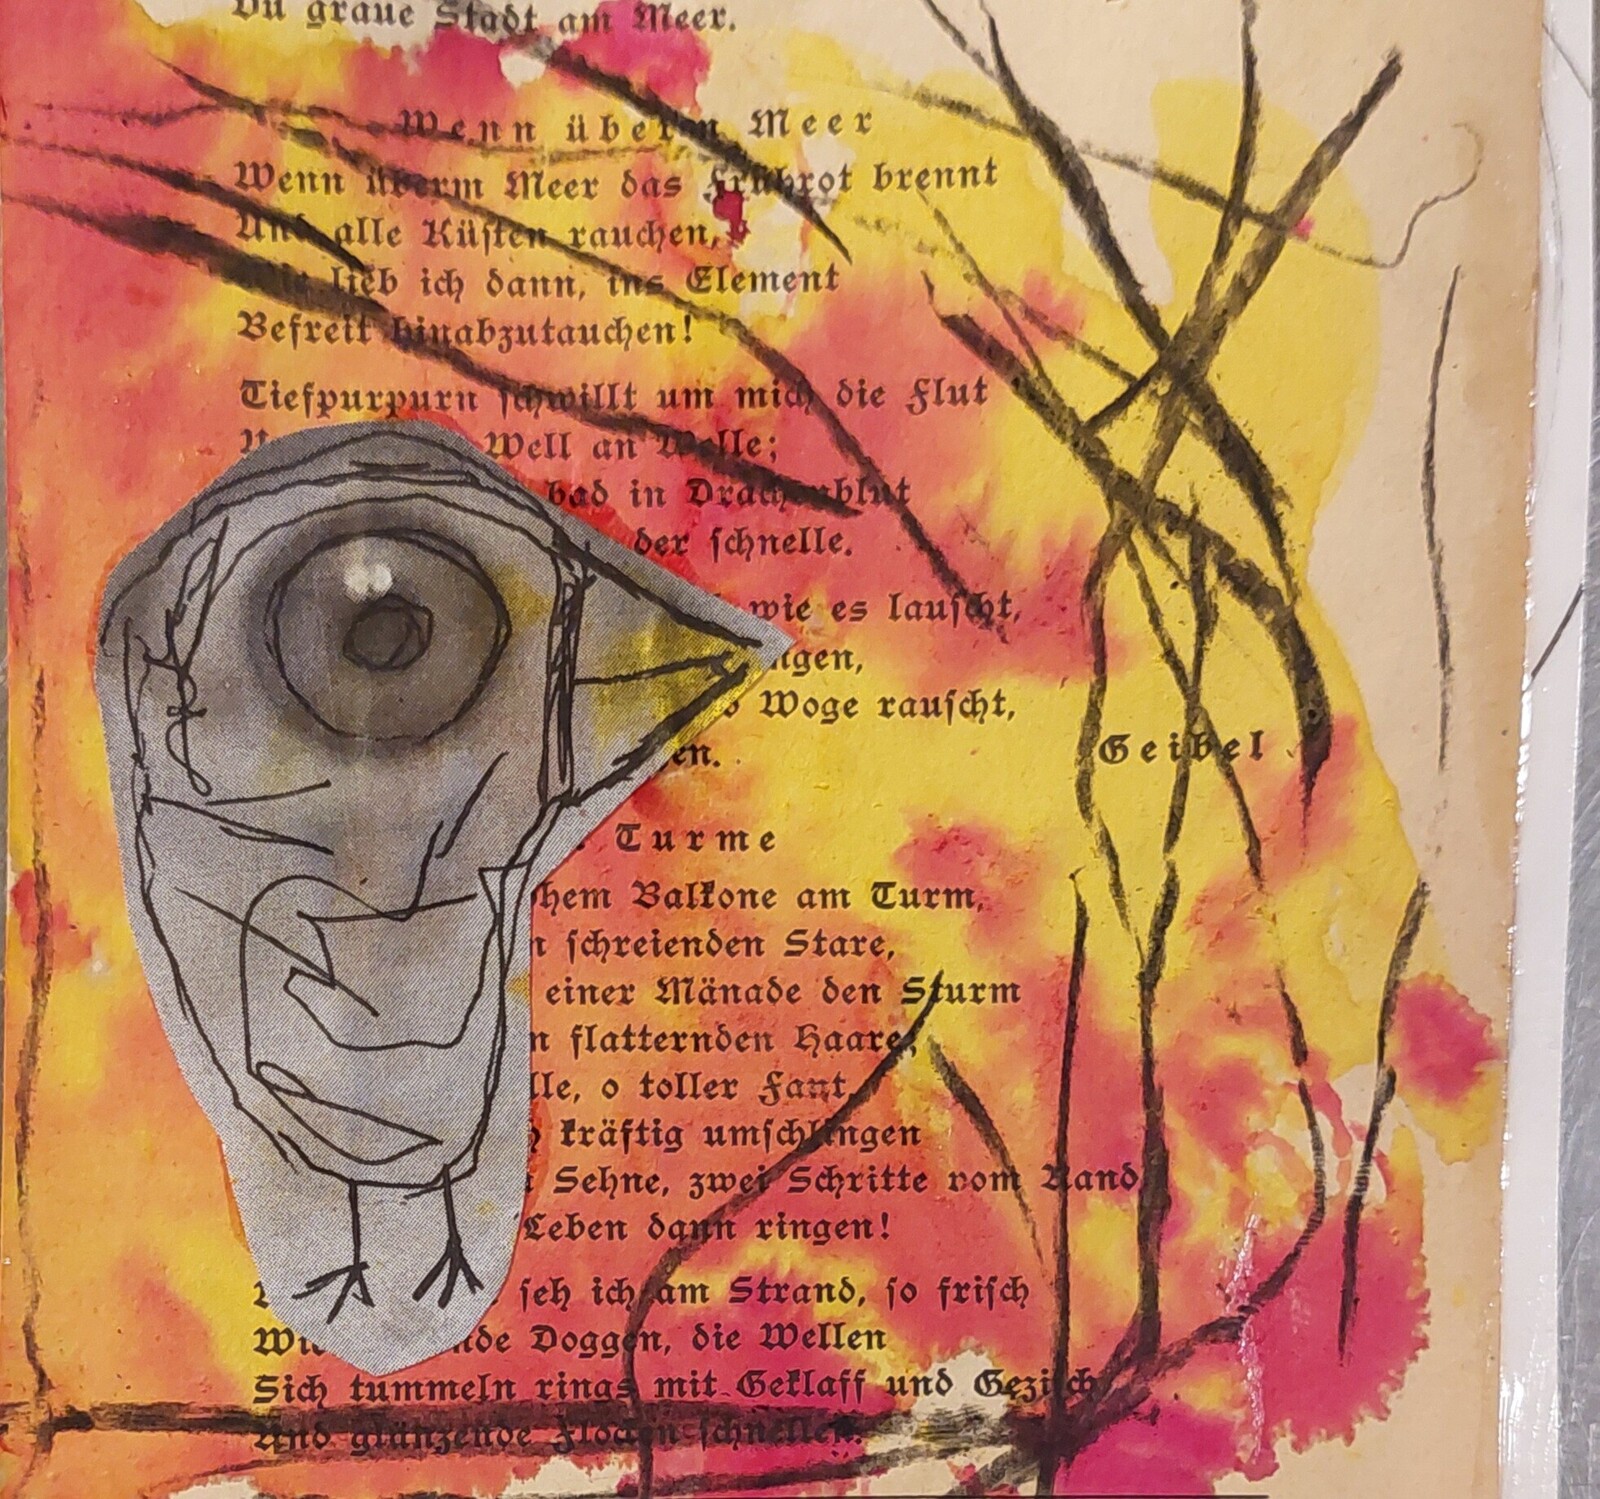 Du graue Stadt am Meer.
Wenn überm Meer
Wenn überm Meer das Frührot brennt
Und alle Küsten rauchen,
lieb ich dann, ins Element
Befreit hinabzutauchen!
Tiefpurpurn schwillt um mich die Flut
Well an Welle;
bad in Drachenblut
der schnelle.
wie es lauscht,
ngen,
Woge rauscht,
en.
Geibel
Turme
hem Balkone am Turm,
n schreienden Stare,
einer Mänade den Sturm
n flatternden Haare;
lle, o toller Fant,
kräftig umschlingen
Sehne, zwei Schritte vom Rand
Leben dann ringen!
seh ich am Strand, so frisch
Wi nde Doggen, die Wellen
Sich tummeln rings mit Geklaff und Gezisch
Und glänzende Flocken schnellen.